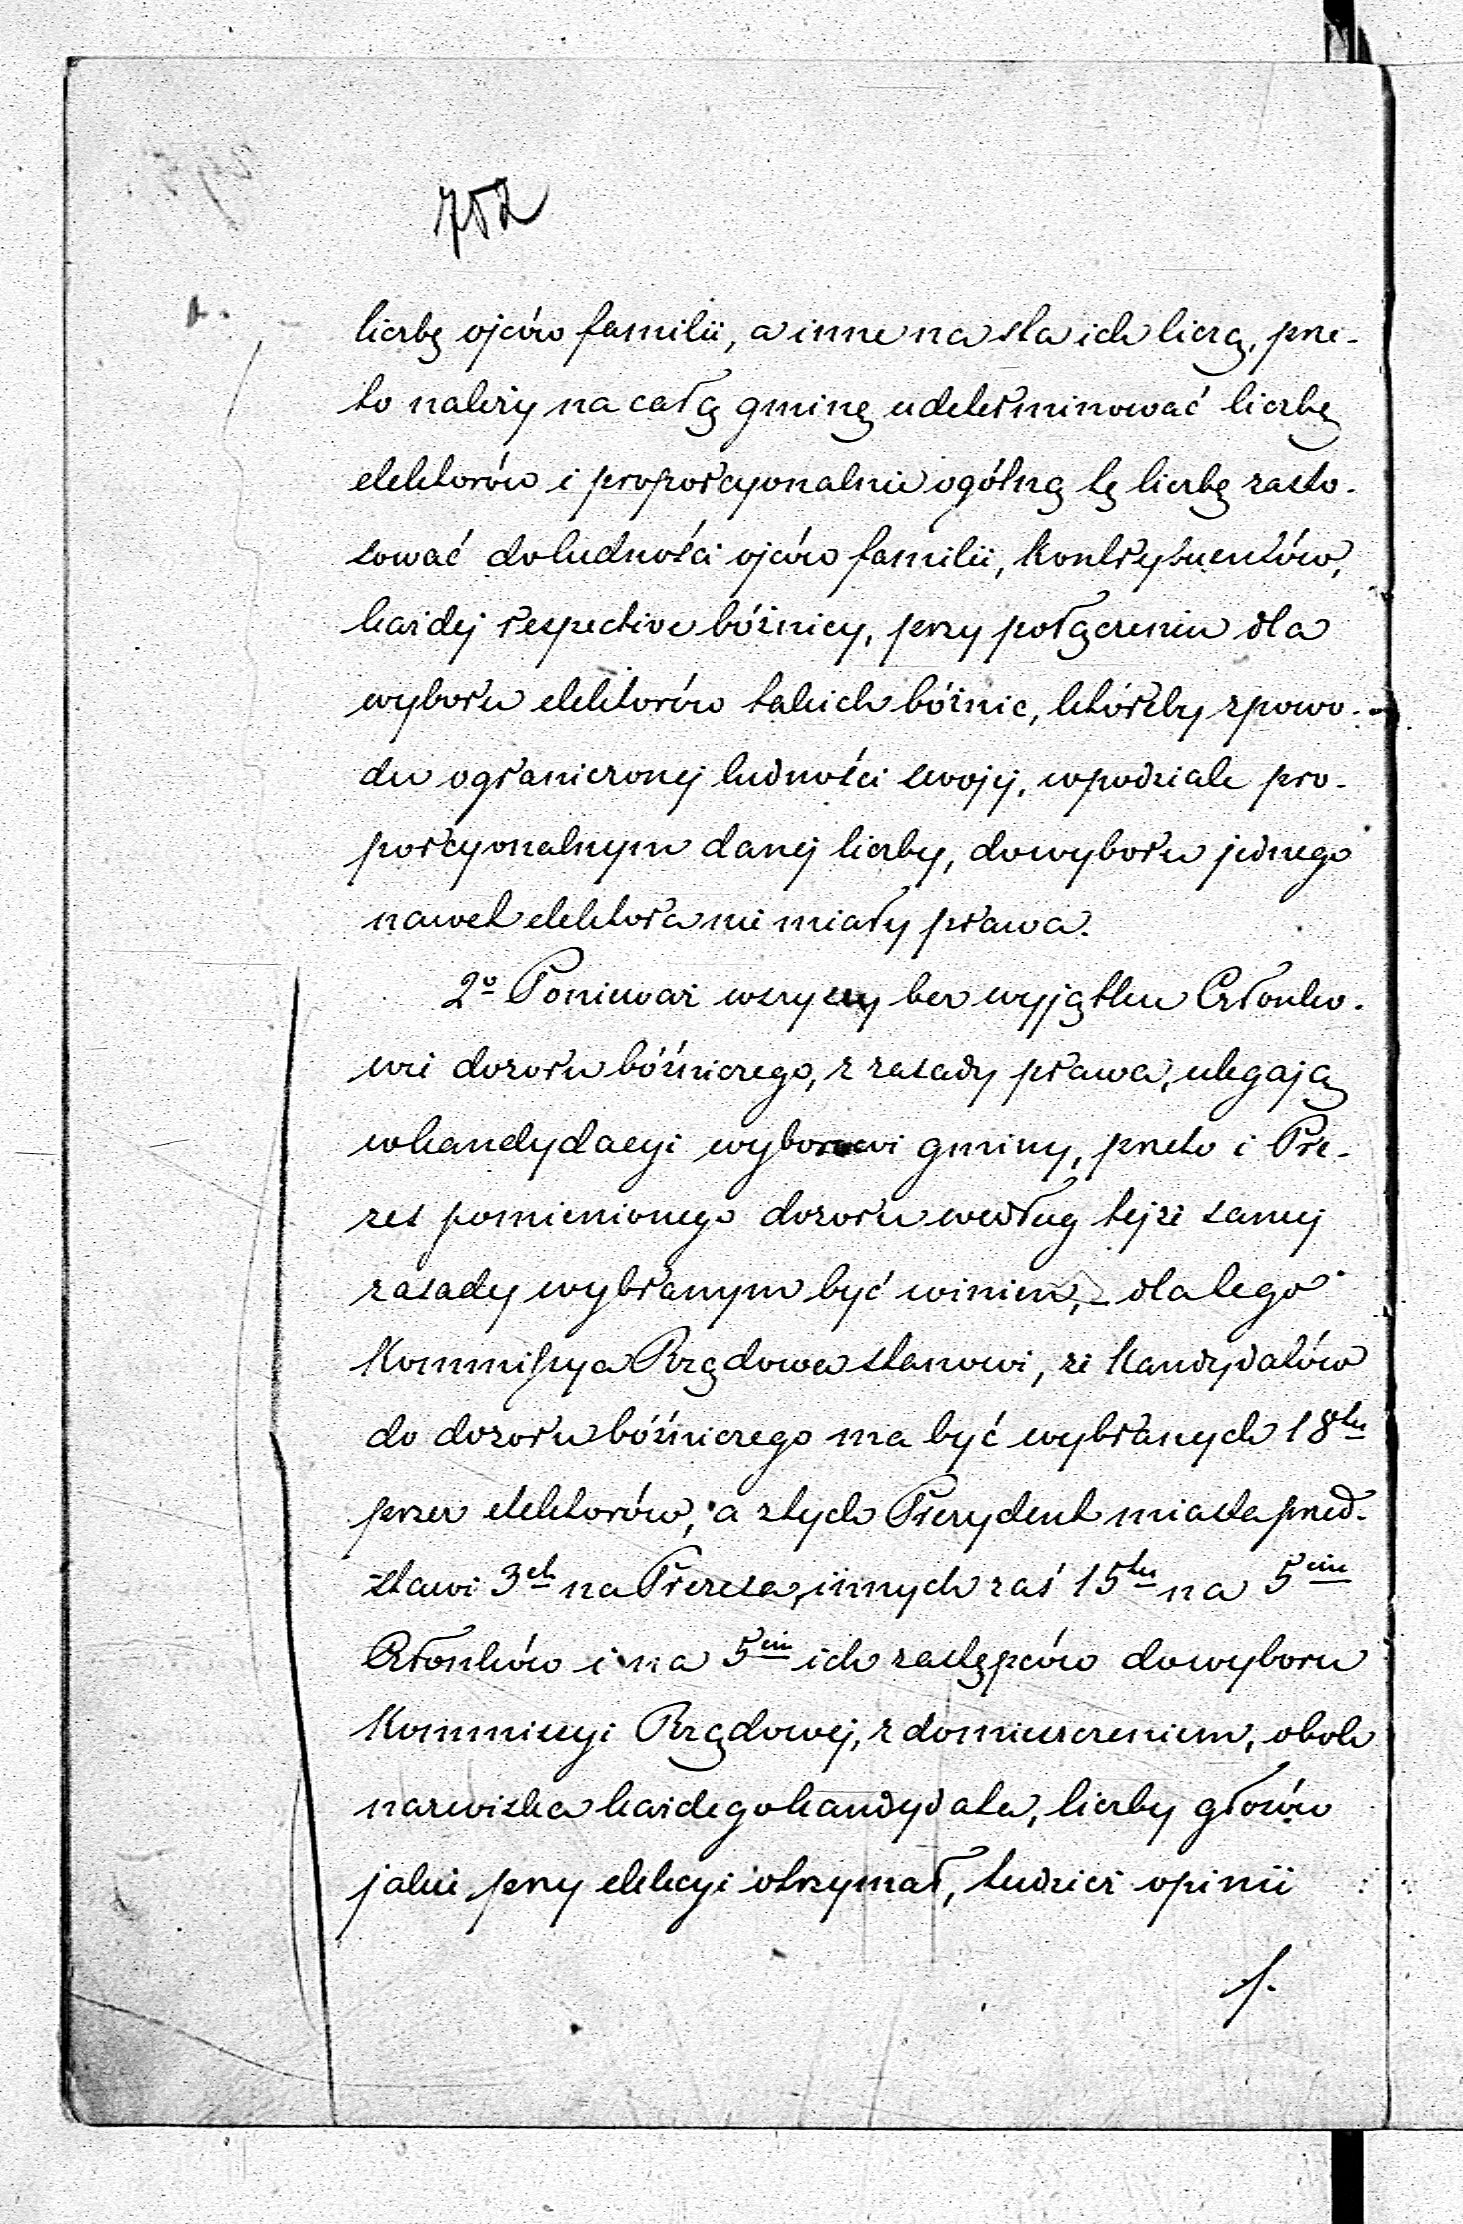 752
liczbę ojców familii, a inne na sta ich liczą, prze-
to należy na całą gminę udeterminować liczbę
elektorów i proporcyonalnie ogólną tę liczbę zasto-
sować do ludności ojców familii, kontrybuentów,
każdej respective bóżnicy, przy połączeniu dla
wyboru elektorów takich bóżnic, któreby z powo-
du ograniczonej ludności swojej, w podziale pro-
porcyonalnym danej liczby, do wyboru jednego
nawet elektora nie miały prawa.
2o Ponieważ wszyscy bez wyjątku Członko-
wie dozoru bóźniczego, z zasady prawa, ulegają
w kandydacyi wyborowi gminy, przeto i Pre-
zes pomienionego dozoru według tejże samej
zasady wybranym być winien, – dla tego
Kommissya Rządowa stanowi, że Kandydatów
do dozoru bóźniczego ma być wybranych 18tu
przez elektorów, a z tych Prezydent miasta przed-
stawi 3ch na Prezesa, innych zaś 15tu na 5ciu
Członków i na 5ciu ich zastępców do wyboru
Kommissyi Rządowej, z domieszczeniem, obok
nazwiska każdego kandydata, liczby głosów
jakie przy elekcyi otrzymał, tudzież opinii